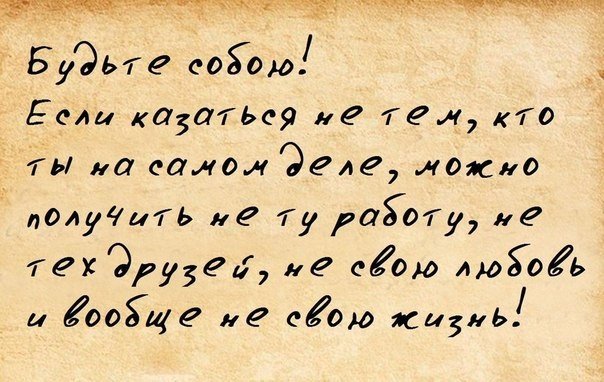 Будьте собою!
Если казаться не тем, кто
ты на самом деле, можно
получить не ту работу, не
тех друзей, не свою любовь
и вообще не свою жизнь!